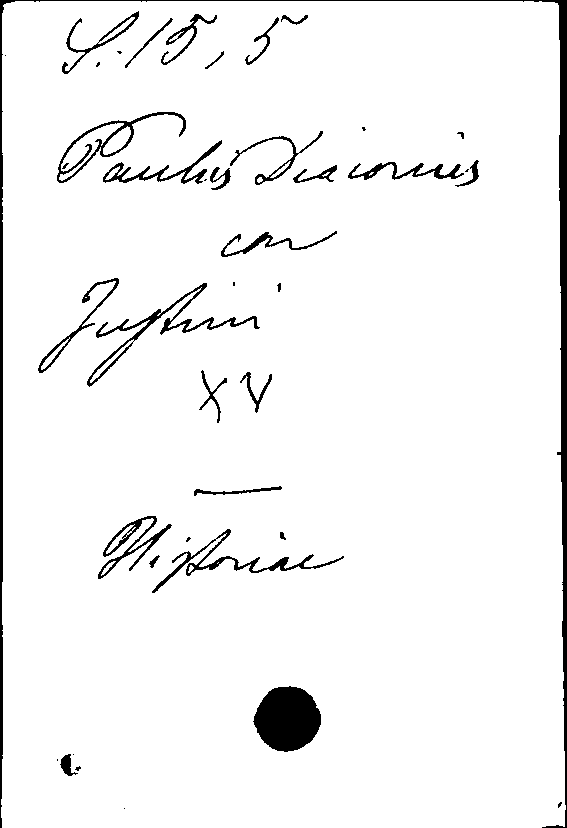 S. 15, 5
Paulus Diaconus
con
Justini
XV
Historiae